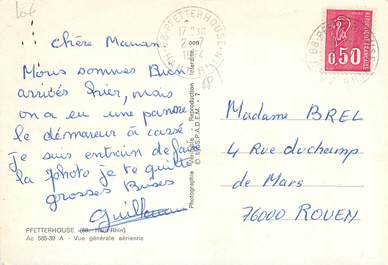 lot
Chère Maman
Nous sommes Bien
arrivés hier, mais
on a eu une panne
le démareur à cassé
Je suis entrain de faire
la photo je te quitte
grosses Bises
Guillaume
PFETTERHOUSE (68. Haut-Rhin)
Ac 585-39 A - Vue générale aérienne
Photographie véritable - Reproduction interdite
© by S.P.A.D.E.M. - 7
68 PFETTERHOUSE
17 H 30
1974
RÉPUBLIQUE FRANÇAISE
0,50
Madame BREL
4 Rue duchamp
de Mars
76000 ROUEN